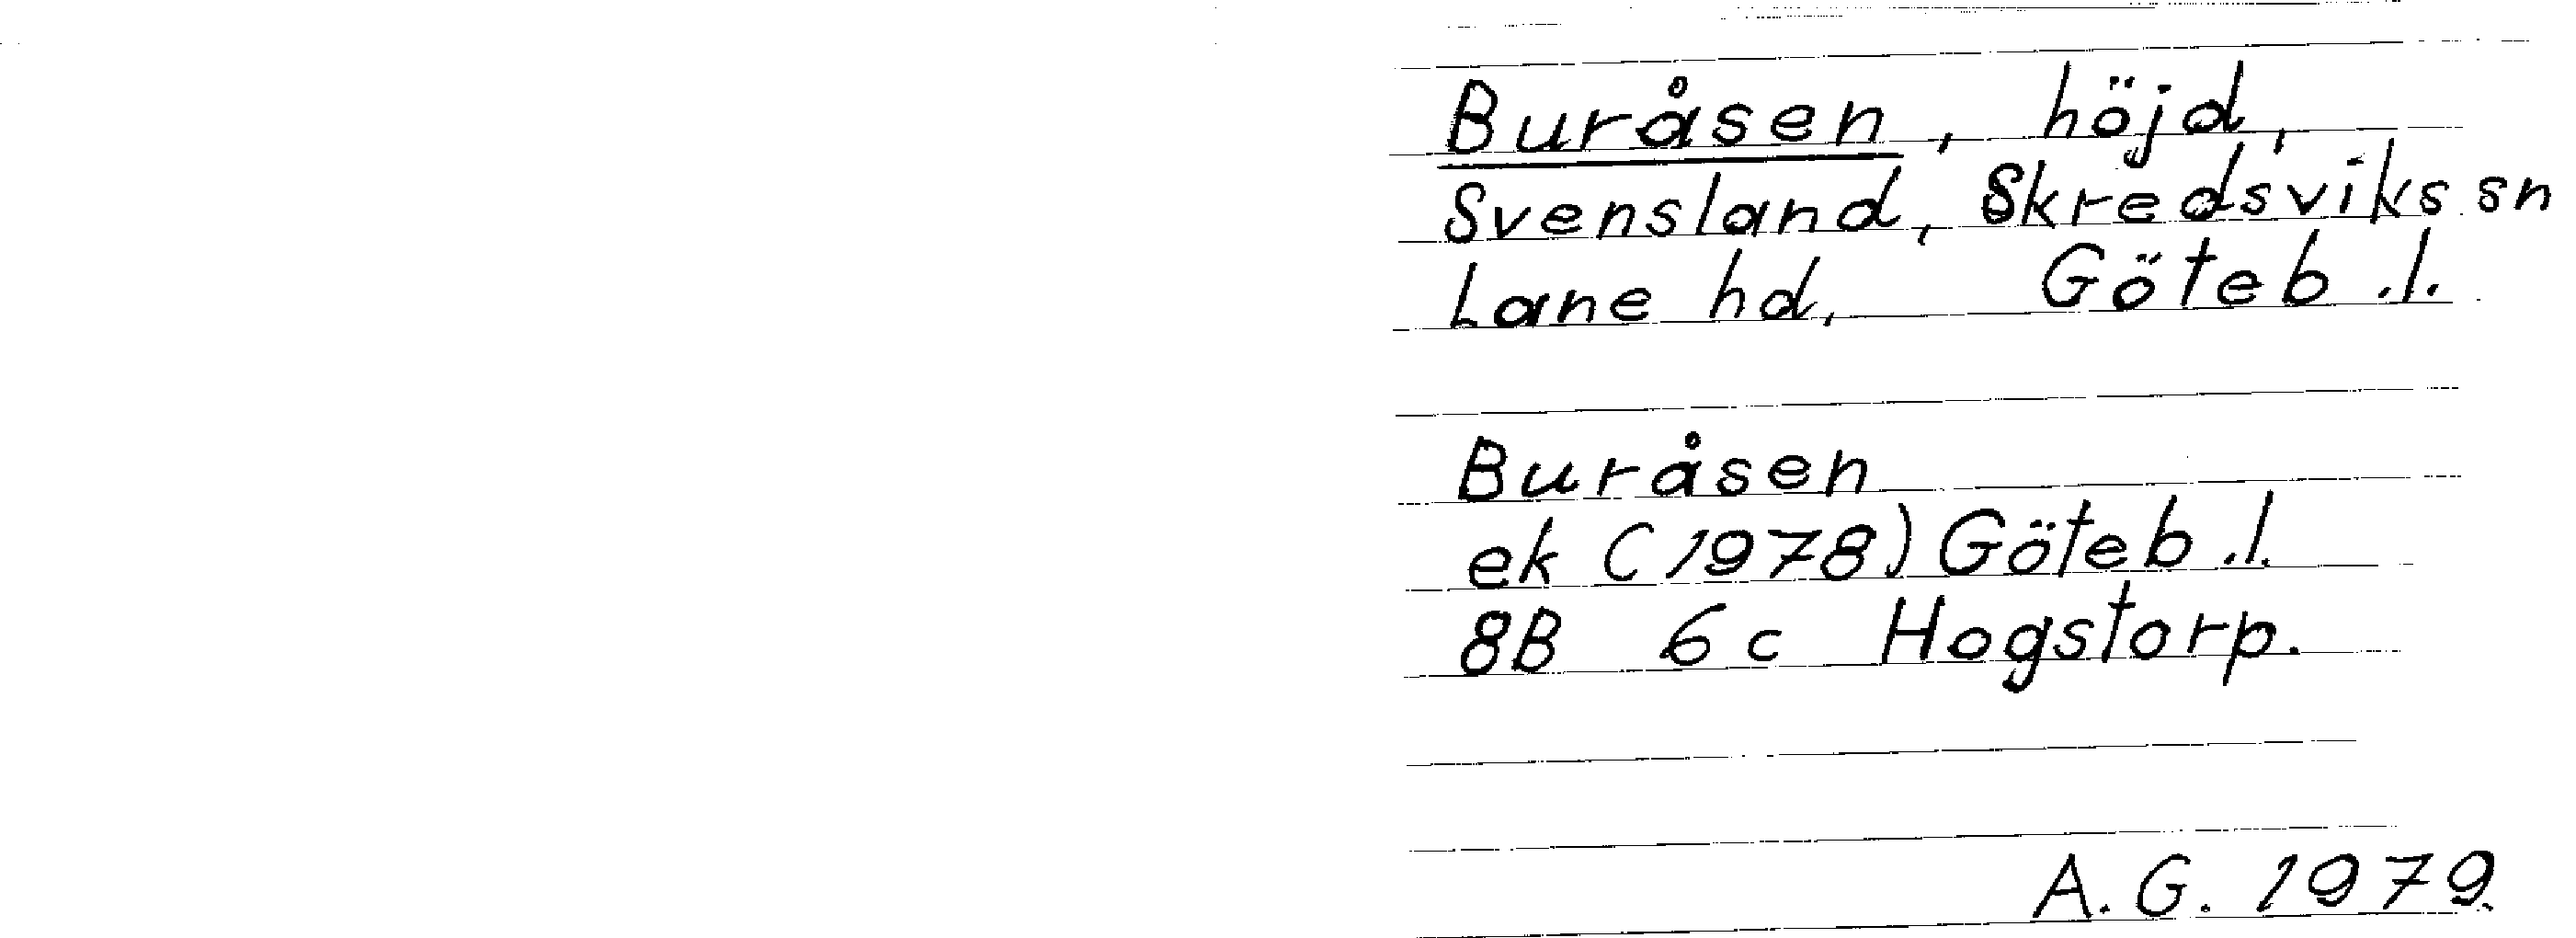 Buråsen, höjd,
Svensland, Skredsviks sn
Lane hd, Göteb.l.
Buråsen
ek (1978) Göteb.l.
8B 6c Hogstorp.
A.G. 1979